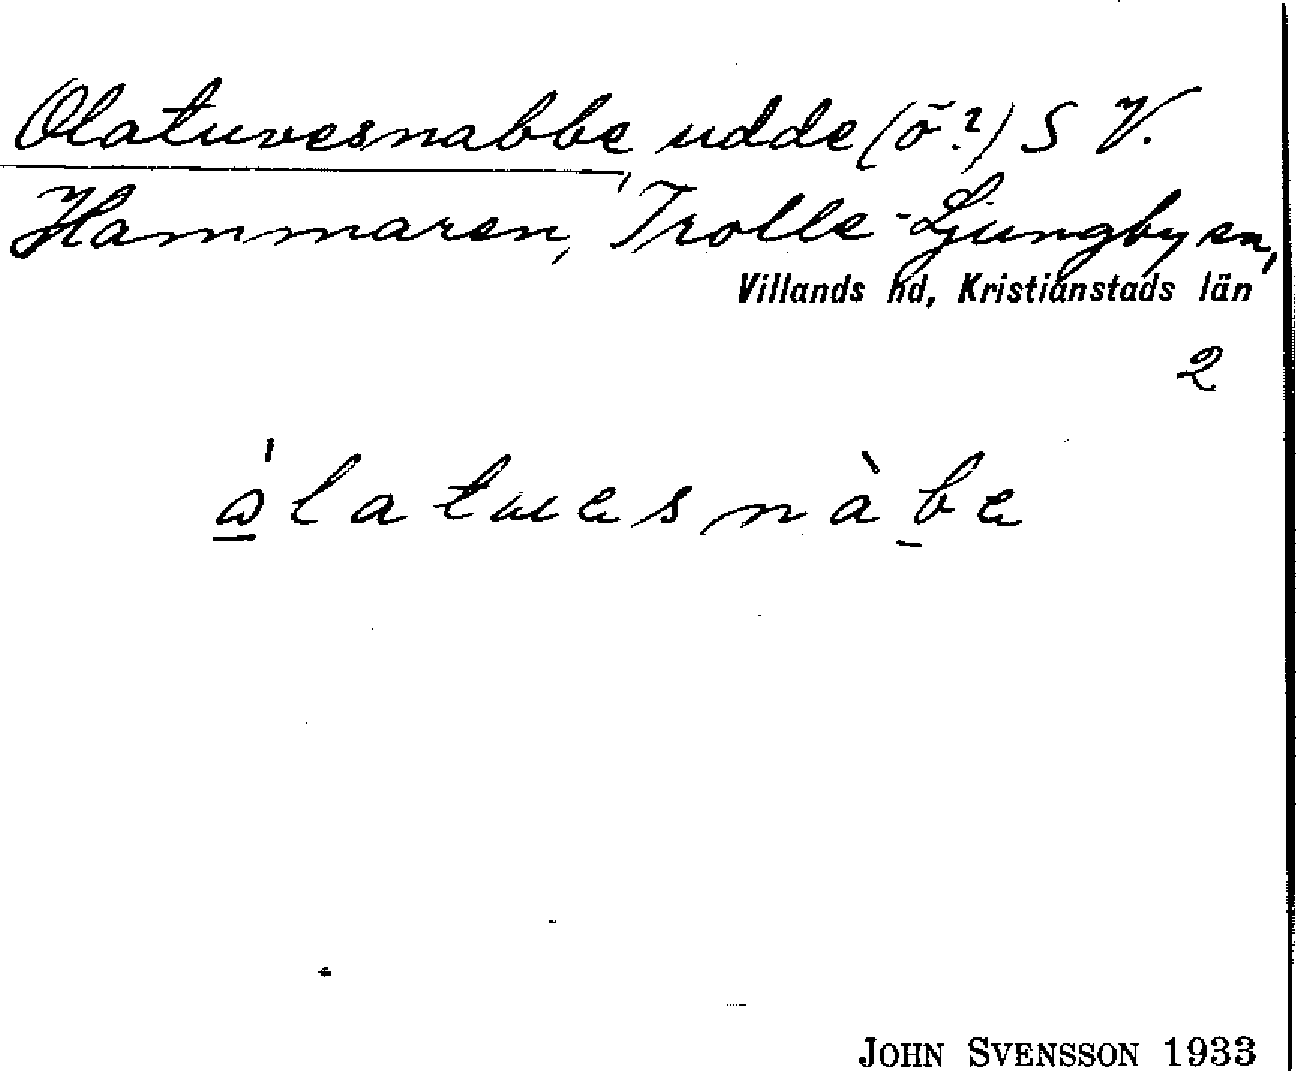 Olatuvesnabbe, udde (ö?) S V.
Hammaren, Trolle-Ljungby sn,
Villands hd, Kristianstads län
2
ålatuesnàbe
JOHN SVENSSON 1933